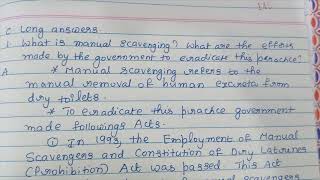 C. Long answers
1. What is manual scavenging? What are the efforts
made by the government to eradicate this peractice?
A * Manual scavenging refers to the
manual removal of human excreta from
dry toilets.
* To eradicate this pracice government
made followings Acts.
① In 1993, the Employment of Manual
Scavengers and Constitution of Dry Latrines
(Prohibition) Act was passed. This Act